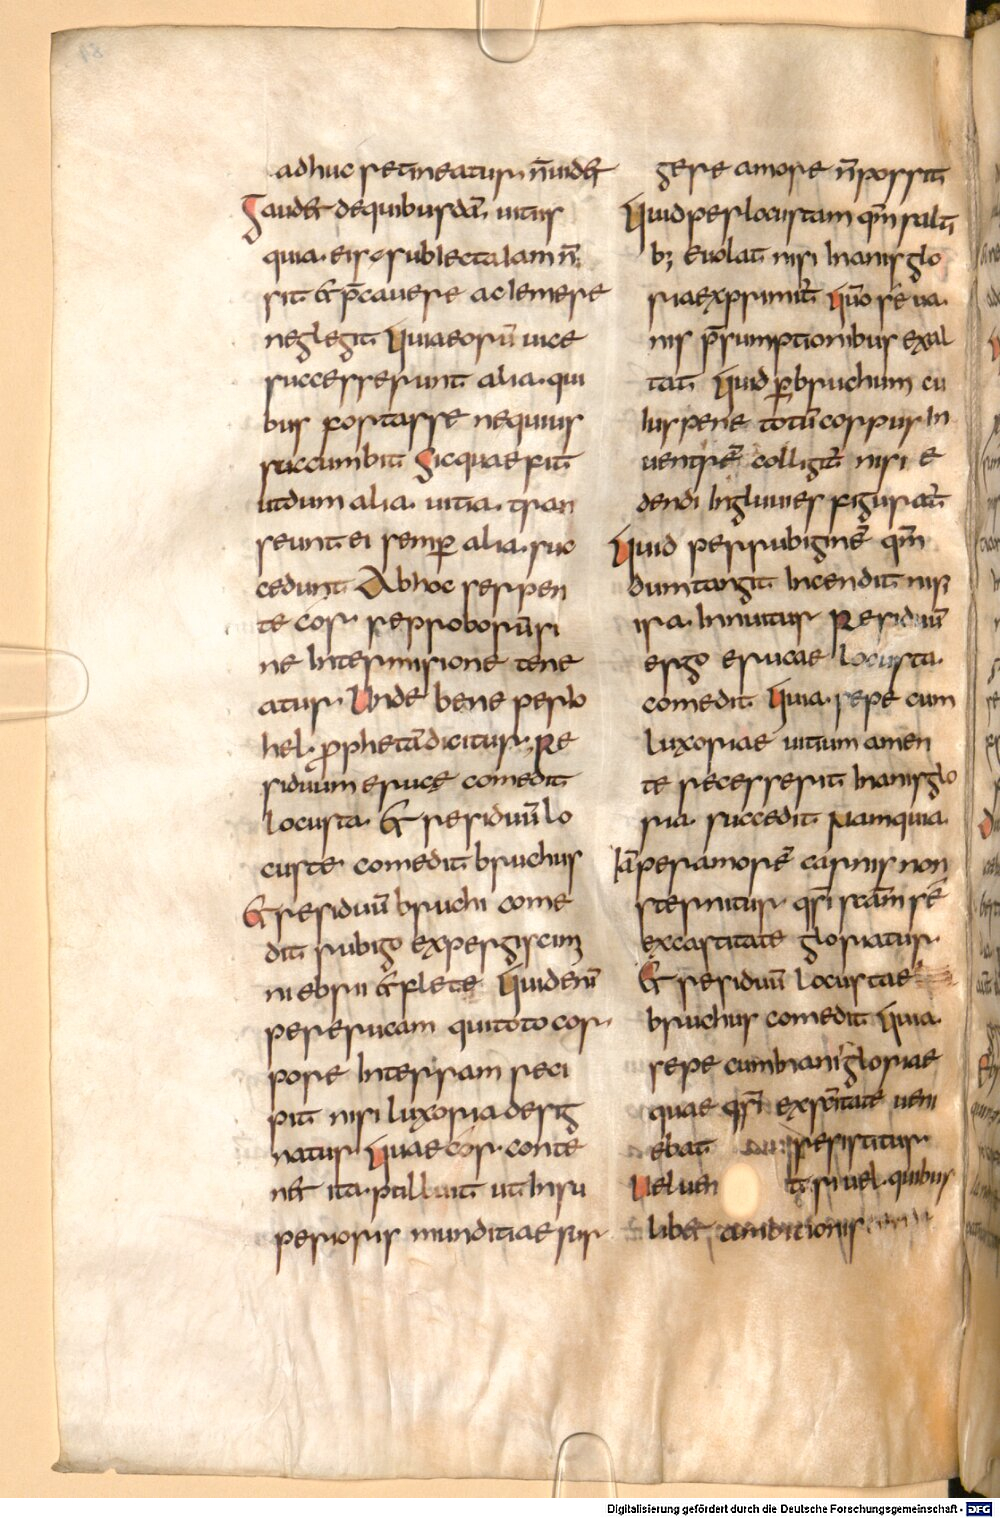 adhuc retineatur n̄ uidet
Gaudet de quibusdā uitiis
quia eis subiecta iam n̄
sit et p̄cauere ac temere
neglegit Quia eorū uice
successerunt alia qui
bus fortasse nequius
succumbit Sicque fit
ut dum alia uitia tran
seunt ei semꝑ alia suc
cedunt Ab hoc serpen
te cor reproborū si
ne intermisione tene
atur Unde bene per io
hel prophetā dicitur Re
siduum eruce comedit
locusta Et residuū lo
custe comedit bruchus
Et residuū bruchi come
dit rubigo expergiscimi
ni ebrii et flete Quid enī
per erucam qui toto cor
pore in terram reci
pit nisi luxoria desig
natur Quae cor conte
net ita polluit ut in su
perioris munditiae sur
gere amore n̄ possit
Quid per locustam qm̄ salti
b; euolat nisi inanis glo
ria exprimit̄ Quō se ua
nis p̄sumptionibus exal
tat Quid ꝑ bruchum cu
ius pene totū corpus in
uentrē colligit̄ nisi e
dendi ingluuies figurat̄
Quid per rubiginē qm̄
dum tangit incendit nisi
ira innuitur Residuū
ergo erucae locusta
comedit Quia sepe cum
luxoriae uitium a men
te recesserit inanis glo
ria succedit Nam quia
Iā per amorē carnis non
sternitur qsī scām sē
ex castitate gloriatur
Et residuū locustae
bruchus comedit Quia
sepe cum inani gloriae
quae qsī ex scītate ueni
ebat resistitur
Uel uen t̄ri uel quibus
libet ambicionis